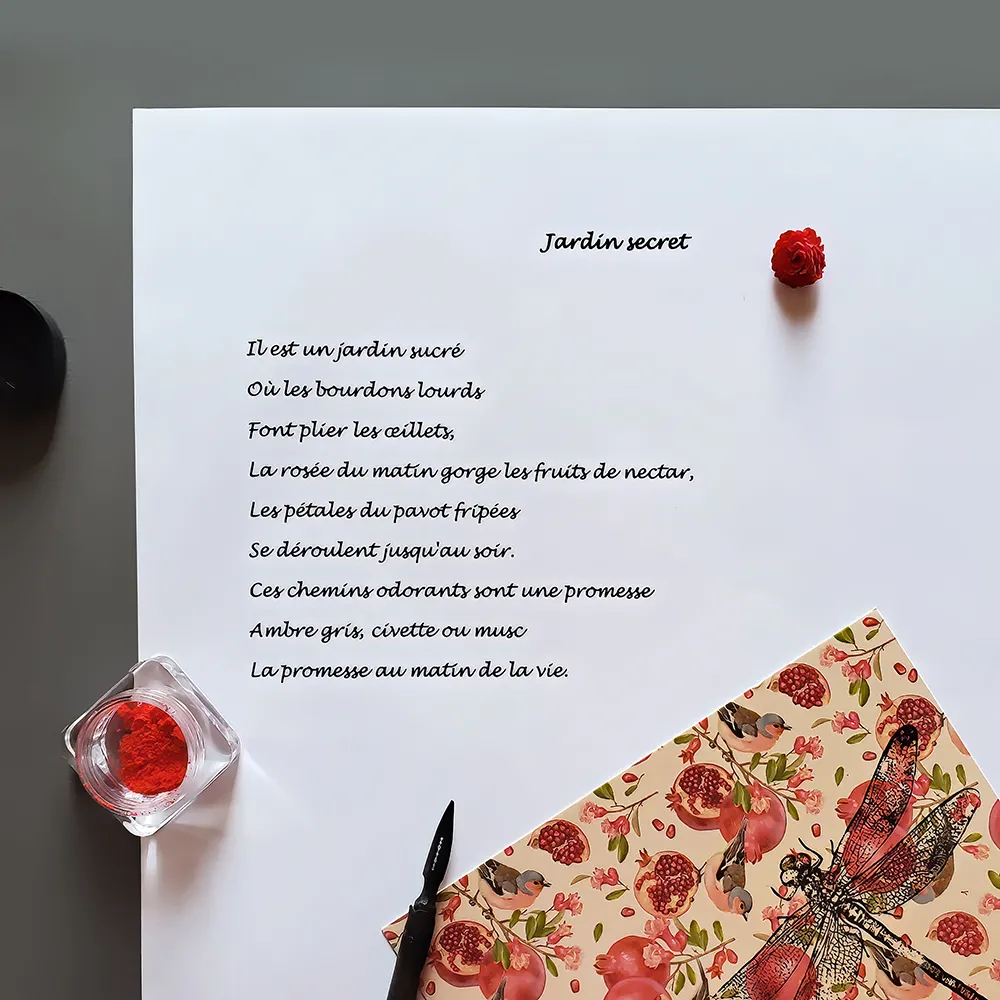 Jardin secret
Il est un jardin sucré
Où les bourdons lourds
Font plier les œillets,
La rosée du matin gorge les fruits de nectar,
Les pétales du pavot fripées
Se déroulent jusqu'au soir.
Ces chemins odorants sont une promesse
Ambre gris, civette ou musc
La promesse au matin de la vie.